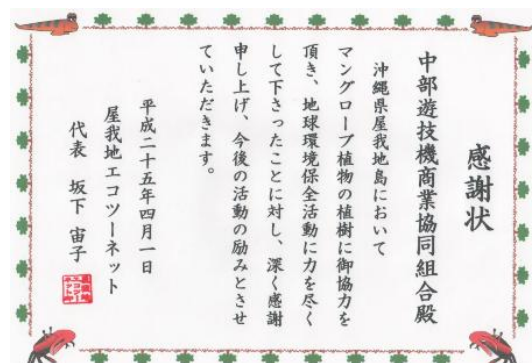 感謝状
中部遊技機商業協同組合殿
沖縄県屋我地島において
マングローブ植物の植樹に御協力を
頂き、地球環境保全活動に力を尽く
して下さったことに対し、深く感謝
申し上げ、今後の活動の励みとさせ
ていただきます。
平成二十五年四月一日
屋我地エコツーネット
代表 坂下 宙子